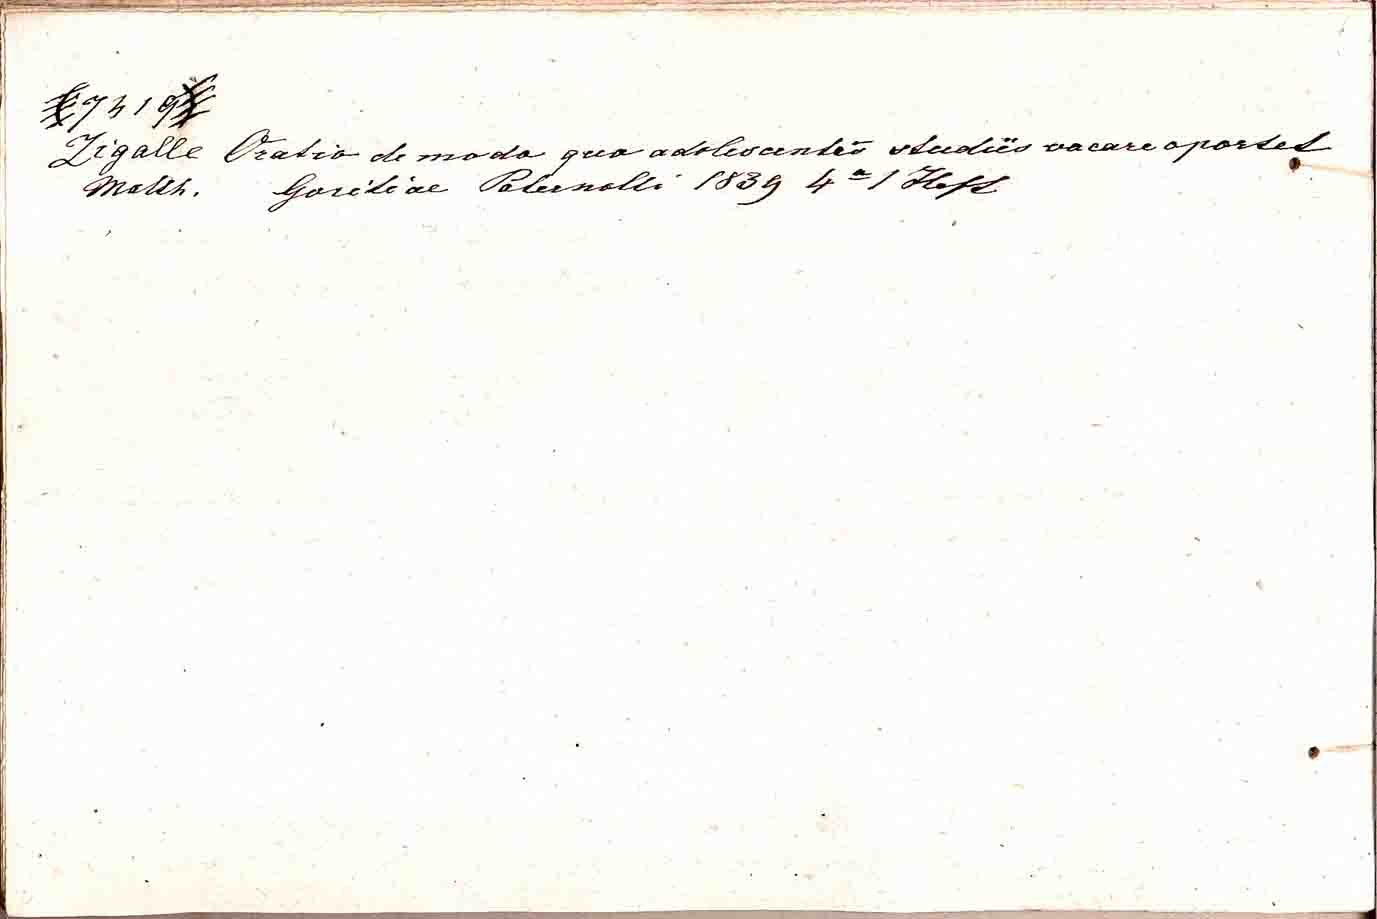 7419
Zigalle Oratio de modo quo adolescentes studiis vacare oportet
Matth. Goritiae Paternolli 1839 4° 1 Heft